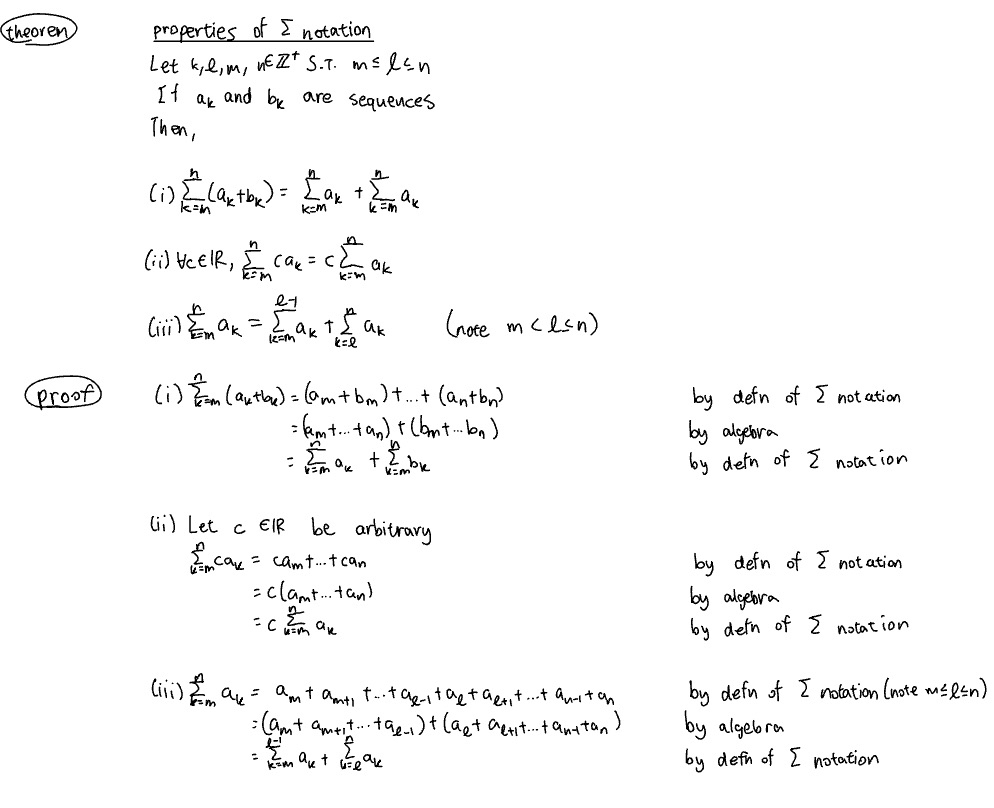 theorem properties of Σ notation
Let k, l, m, n ∈ ℤ⁺ S.T. m ≤ l ≤ n
If aₖ and bₖ are sequences
Then,
(i) \sum_{k=m}^{n} (a_k + b_k) = \sum_{k=m}^{n} a_k + \sum_{k=m}^{n} a_k
(ii) ∀c∈ℝ, \sum_{k=m}^{n} c a_k = c \sum_{k=m}^{n} a_k
(iii) \sum_{k=m}^{n} a_k = \sum_{k=m}^{l-1} a_k + \sum_{k=l}^{n} a_k (note m < l ≤ n)
proof (i) \sum_{k=m}^{n} (a_k + b_k) = (a_m + b_m) + ... + (a_n + b_n) by defn of Σ notation
= (a_m + ... + a_n) + (b_m + ... b_n) by algebra
= \sum_{k=m}^{n} a_k + \sum_{k=m}^{n} b_k by defn of Σ notation
(ii) Let c ∈ℝ be arbitrary
\sum_{k=m}^{n} c a_k = c a_m + ... + c a_n by defn of Σ notation
= c(a_m + ... + a_n) by algebra
= c \sum_{k=m}^{n} a_k by defn of Σ notation
(iii) \sum_{k=m}^{n} a_k = a_m + a_{m+1} + ... + a_{l-1} + a_l + a_{l+1} + ... + a_{n-1} + a_n by defn of Σ notation (note m ≤ l ≤ n)
= (a_m + a_{m+1} + ... + a_{l-1}) + (a_l + a_{l+1} + ... + a_{n-1} + a_n) by algebra
= \sum_{k=m}^{l-1} a_k + \sum_{k=l}^{n} a_k by defn of Σ notation